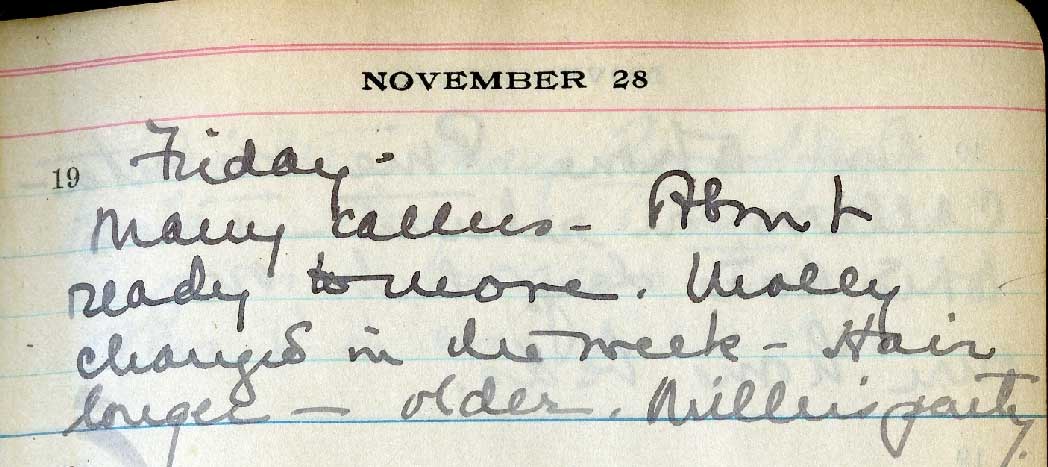 NOVEMBER 28
19 Friday -
Many callers - About
ready to move. Molly
changed in the week - Hair
longer - older. Millers party